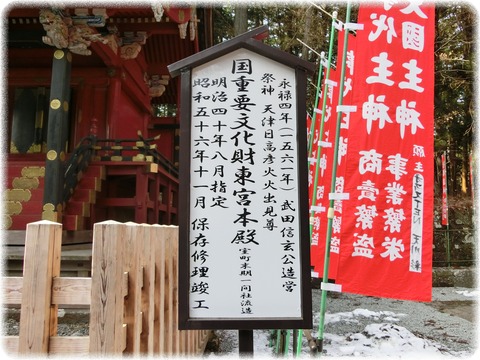 永禄四年（一五六一年）武田信玄公造営
祭神 天津日高彦火火出見尊
国重要文化財東宮本殿 室町末期 一間社流造
明治四十年八月指定
昭和五十六年十一月 保存修理竣工
国主神
代主神
事業繁栄
商売繁盛
願主